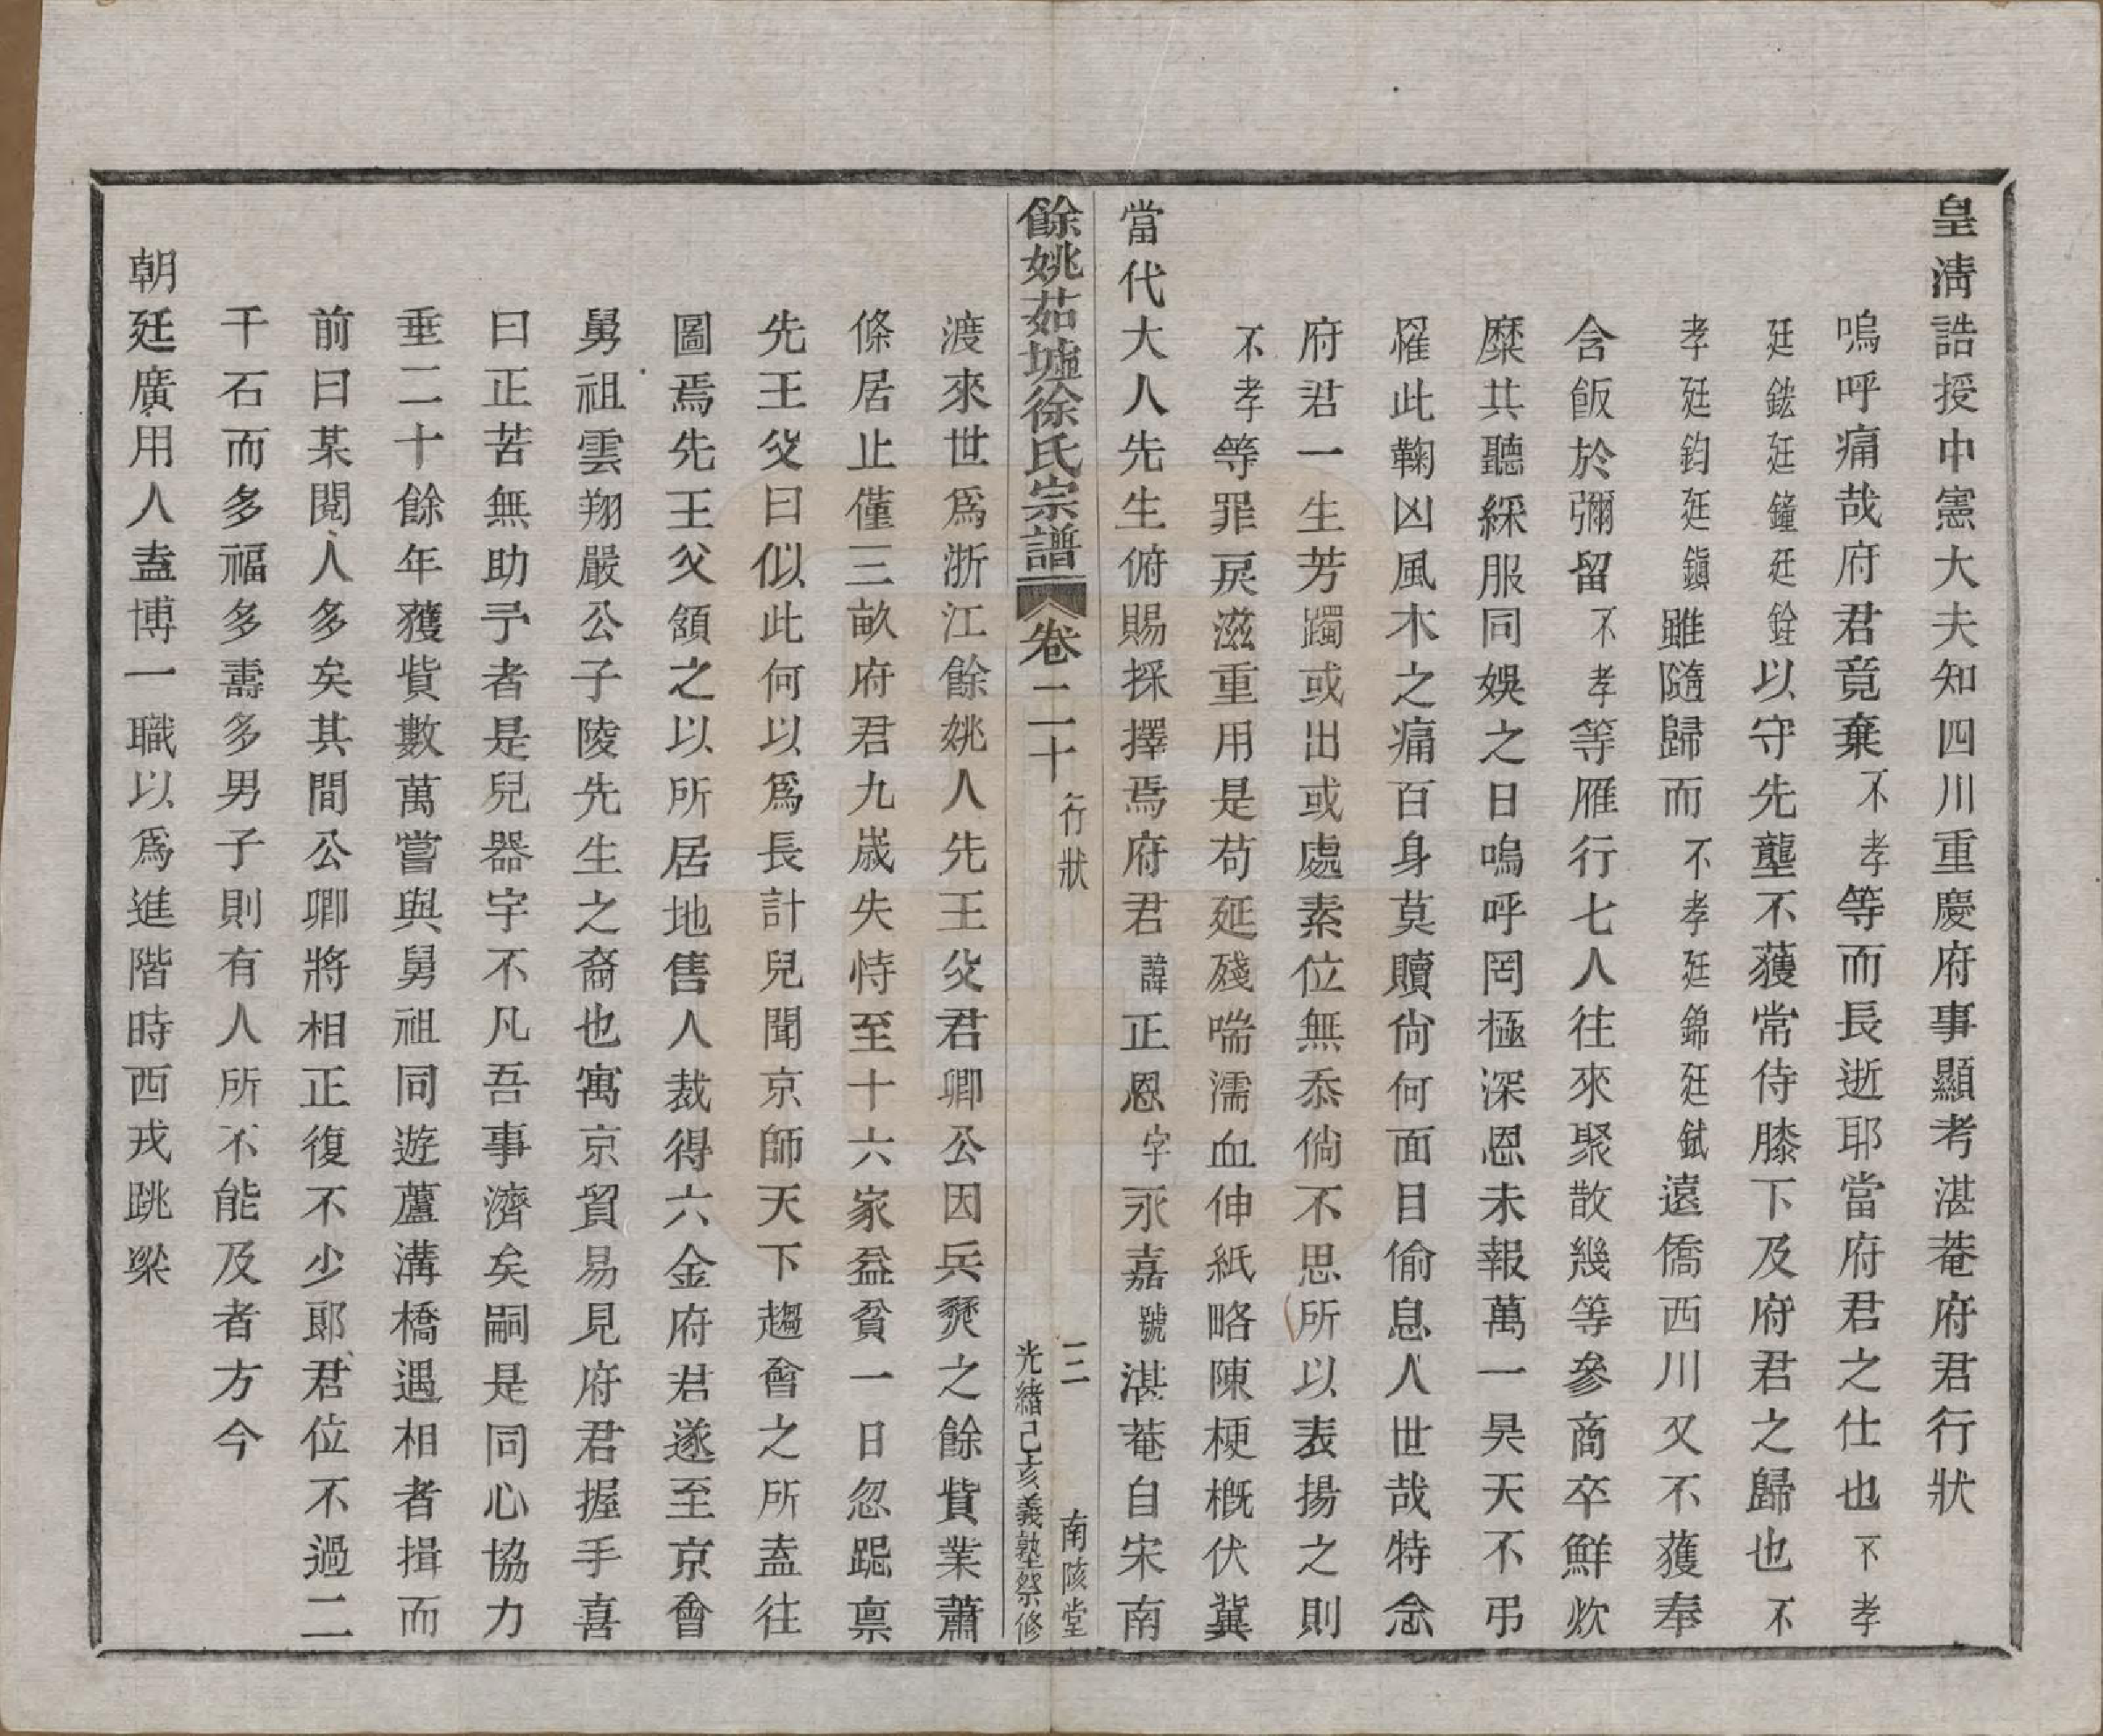 皇淸誥授中憲大夫知四川重慶府事顯考湛菴府君行狀
嗚呼痛哉府君竟棄不孝等而長逝耶當府君之仕也不孝
廷鋐廷鐘廷銓以守先壟不獲常侍膝下及府君之歸也不
孝廷鈞廷鎭雖隨歸而不孝廷錦廷鉽遠僑西川又不獲奉
含飯於彌留不孝等雁行七人往來聚散幾等參商卒鮮炊
糜共聽綵服同娛之日嗚呼罔極深恩未報萬一昊天不弔
罹此鞠凶風木之痛百身莫贖尙何面目偷息人世哉特念
府君一生芳躅或出或處素位無忝倘不思所以表揚之則
不孝等罪戾滋重用是苟延殘喘濡血伸紙略陳梗槪伏冀
當代大人先生俯賜採擇焉府君諱正恩字永嘉號湛菴自宋南
餘姚茹墟徐氏宗譜 卷二十 行狀 三 南陔堂 光緒己亥義塾祭修
渡來世爲浙江餘姚人先王父君卿公因兵燹之餘貲業蕭
條居止僅三畝府君九歲失恃至十六家益貧一日忽跽禀
先王父曰似此何以爲長計兒聞京師天下趨會之所盍往
圖焉先王父頷之以所居地售人裁得六金府君遂至京會
舅祖雲翔嚴公子陵先生之裔也寓京貿易見府君握手喜
曰正苦無助予者是兒器宇不凡吾事濟矣嗣是同心協力
垂二十餘年獲貲數萬嘗與舅祖同遊蘆溝橋遇相者揖而
前曰某閱人多矣其間公卿將相正復不少郞君位不過二
千石而多福多壽多男子則有人所不能及者方今
朝廷廣用人盍博一職以爲進階時西戎跳梁